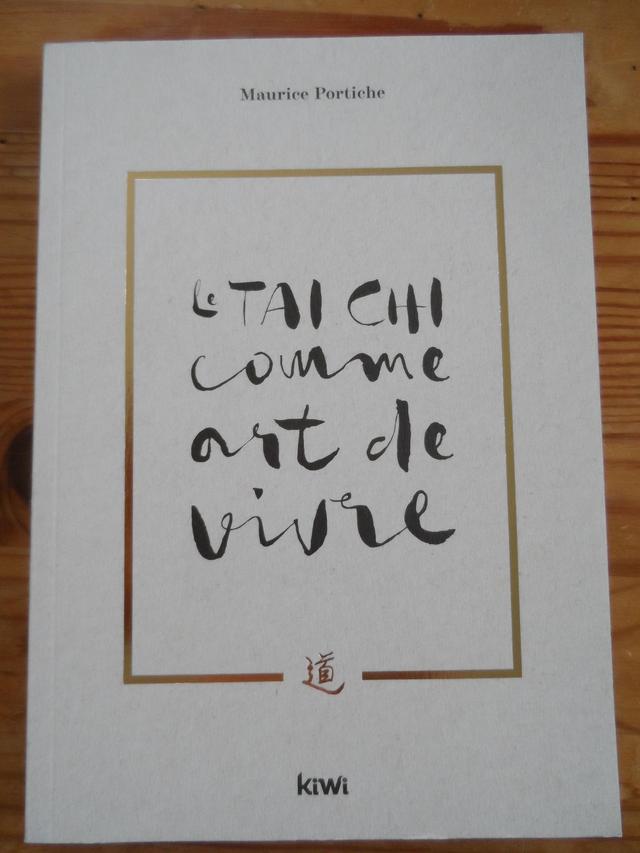 Maurice Portiche
Le TAI CHI
comme
art de
vivre
道
kiwi